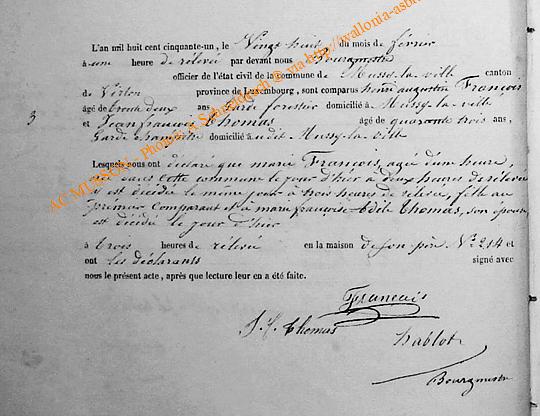 L'an mil huit cent cinquante-un, le Vingt huit du mois de février
à une heure de relevée par devant nous Bourgmestre
officier de l'état civil de la commune de Mussy-la-ville canton
de Virton province de Luxembourg, sont comparus henri augustin François
âgé de trente deux ans Garde forestier domicilié à Mussy-la-ville
3 et Jean françois Thomas âgé de quarante trois ans,
Garde champêtre domicilié à udit Mussy-la-ville
Lesquels nous ont déclaré que marie François, agée d'une heure,
née dans cette commune le jour d'hier à deux heures de relevée
est décédée le même jour à trois heures de relevée, fille au
premier comparant et à marie françoise Adèle Thomas, son épouse
est décédée le jour d'hier
à trois heures de relevée en la maison de son père N° 214 et
ont les déclarants signé avec
nous le présent acte, après que lecture leur en a été faite.
Francois
J. f. Thomas
hablot
Bourgmestre
AC MUSSON - Photos A. Schneidesch @ via http://wallonia-asbl